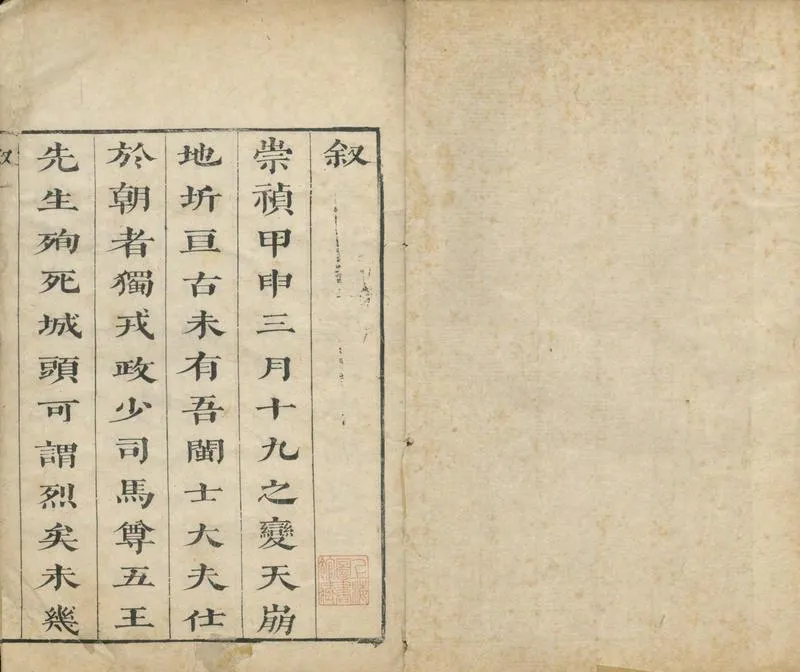 叙
崇禎甲申三月十九之變天崩
地坼亘古未有吾閩士大夫仕
於朝者獨戎政少司馬尊五王
先生殉死城頭可謂烈矣未幾
叙
上海圖書館藏